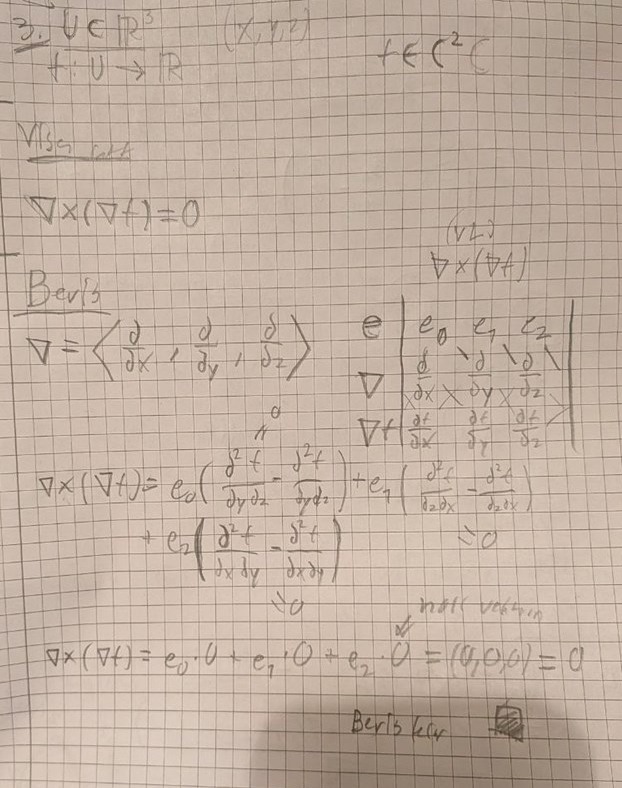 3. U ⊂ ℝ³ (x,y,z) f ∈ C² (
f: U → ℝ
Visa att
∇×(∇f)=0
Bevis
∇×(∇f)
∇ = ⟨∂/∂x, ∂/∂y, ∂/∂z⟩
e | e₀ e₁ e₂ |
∇ | ∂/∂x ∂/∂y ∂/∂z |
∇f | ∂f/∂x ∂f/∂y ∂f/∂z |
=0
∇×(∇f)= e₀(∂²f/∂y∂z - ∂²f/∂y∂z) + e₁(∂²f/∂z∂x - ∂²f/∂z∂x)
+ e₂(∂²f/∂x∂y - ∂²f/∂x∂y) =0
=0
∇×(∇f)= e₀·0 + e₁·0 + e₂·0 = (0,0,0) = 0
Bevis klar